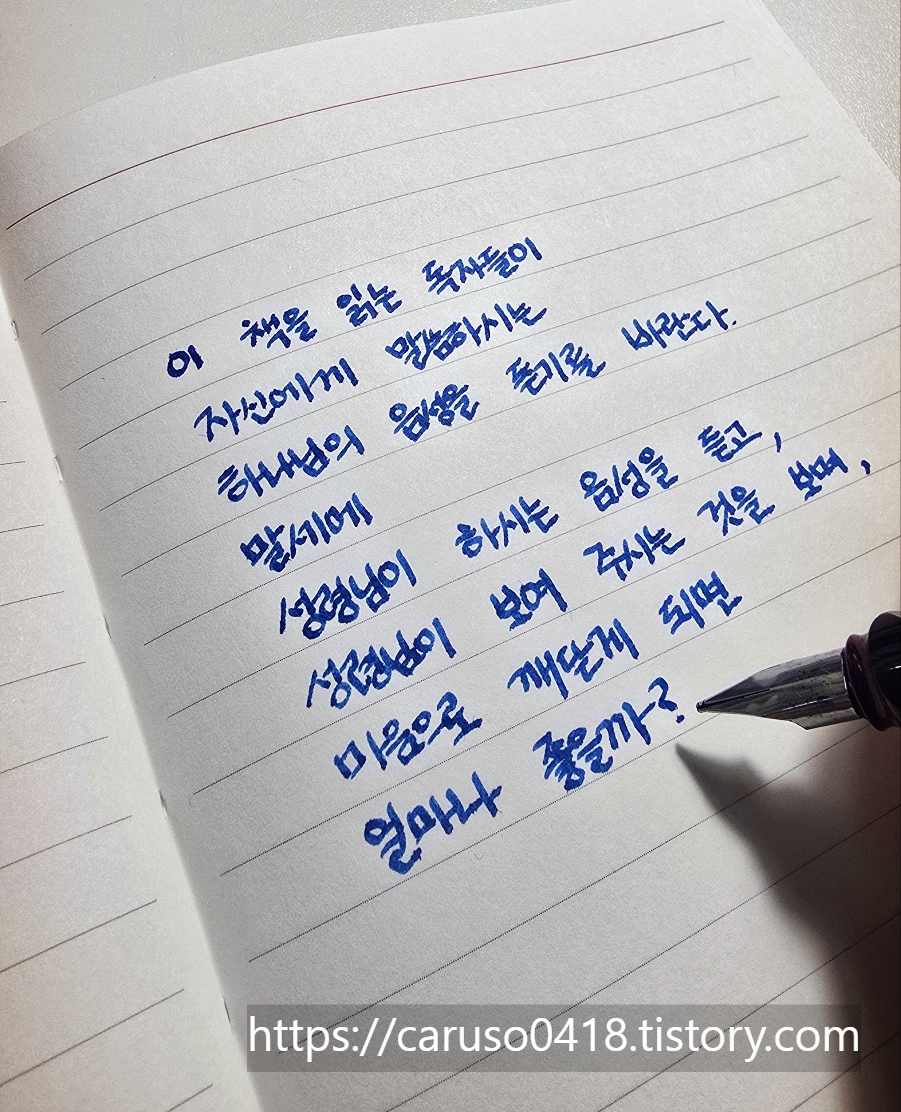 이 책을 읽는 독자들이
자신에게 말씀하시는
하나님의 음성을 듣기를 바란다.
말세에
성령님이 하시는 음성을 듣고,
성령님이 보여 주시는 것을 보며,
마음으로 깨닫게 되면
얼마나 좋을까?
https://caruso0418.tistory.com